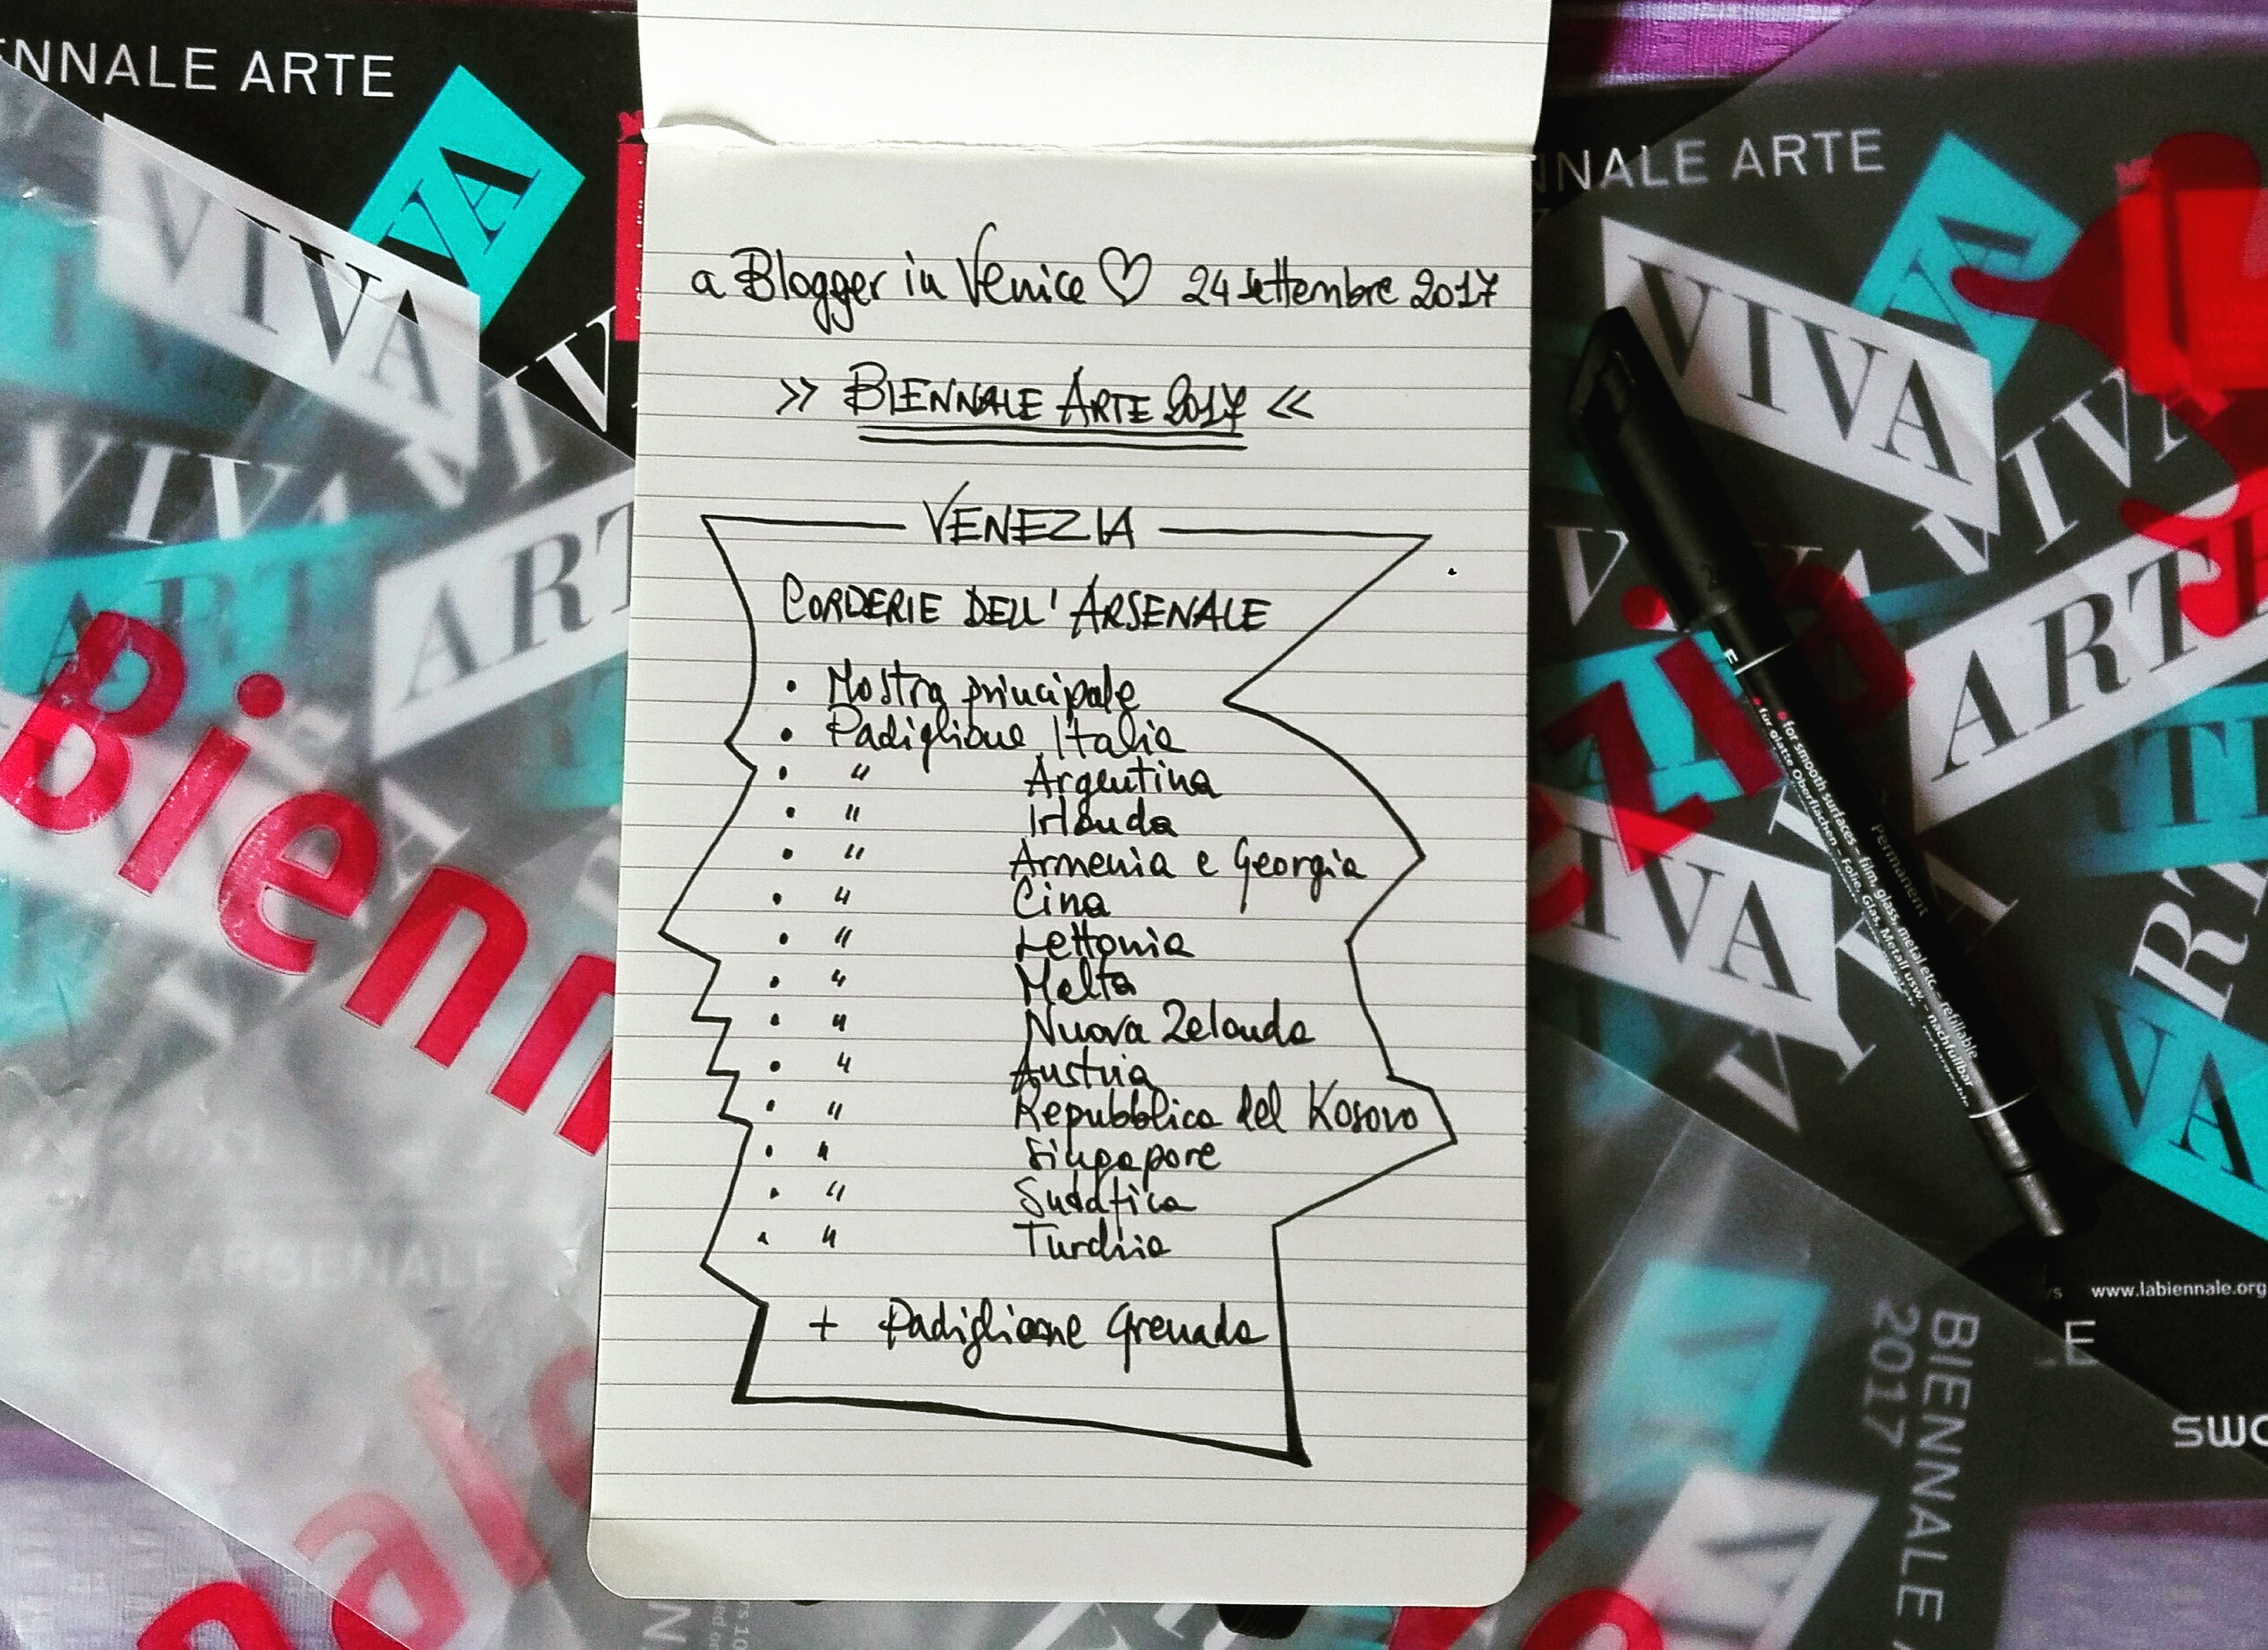 a Blogger in Venice ♡ 24 settembre 2017
>> BIENNALE ARTE 2017 <<
VENEZIA
CORDERIE DELL'ARSENALE
• Mostra principale
• Padiglione Italia
• " Argentina
• " Irlanda
• " Armenia e Georgia
• " Cina
• " Lettonia
• " Malta
• " Nuova Zelanda
• " Austria
• " Repubblica del Kosovo
• " Singapore
• " Sudafica
• " Turchia
+ Padiglione Grenada
ENNALE ARTE
VIVA
VIVA
VIV
VIVA
ART
ART
Bienn
ARSENALE
ale
NNALE ARTE
VIVA
VIVA
VIVA
ARTE
VIVA
VA
Permanent
for smooth surfaces - film, glass, metal etc. - refillable
für glatte Oberflächen - Folie, Glas, Metall usw. - nachfüllbar
www.labiennale.org
E
BIENNALE A
2017
swa